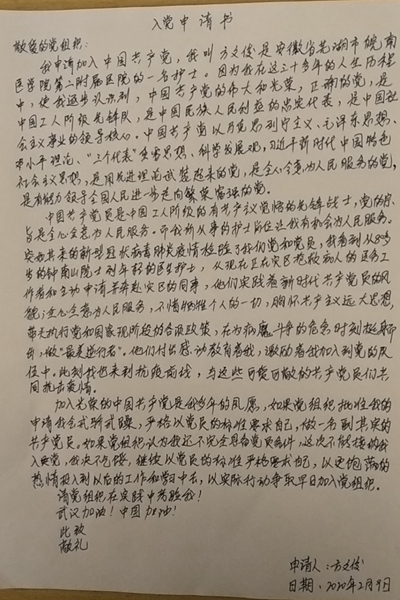 入党申请书
敬爱的党组织：
我申请加入中国共产党，我叫方文俊是安徽省芜湖市皖南
医学院第二附属医院的一名护士。因为我在这三十多年的人生历程
中，使我逐步认识到，中国共产党的伟大和光荣，正确的党，是
中国工人阶级先锋队，是中国民族人民利益的忠实代表，是中国社
会主义事业的领导核心。中国共产党以马克思列宁主义、毛泽东思想、
邓小平理论、“三个代表”重要思想、科学发展观，习近平新时代中国特色
社会主义思想，是用先进理论武装起来的党，是全心全意为人民服务的党，
是有能力领导全国人民进一步走向繁荣富强的党。
中国共产党员是中国工人阶级的有共产主义觉悟的先锋战士，党的宗
旨是全心全意为人民服务。而我所从事的护士岗位让我有机会为人民服务。
突如其来的新型冠状病毒肺炎疫情检验了我们党和党员，我看到从84岁
的钟南山院士到年轻的医务护士，从现在正在灾区抢救病人的医务工
作者和主动申请等奔赴灾区的同事，他们实践着新时代共产党员的风
貌；全心全意为人民服务，不惜牺牲个人的一切，胸怀共产主义远大思想，
带头执行党和国家现阶段的各项政策，在与病魔斗争的危急时刻挺身而
出，做“最美逆行者”。他们付出感动教育着我，激励着我加入到党的队
伍中。此刻我也来到抗疫前线，与这些可爱可敬的共产党员们共
同抗击疫情。
加入光荣的中国共产党是我多年的夙愿，如果党组织批准我的
申请我会戒骄戒躁，严格以党员的标准要求自己，做一名名副其实的
共产党员。如果党组织认为我还不完全具备党员条件，这次不能接纳我
入党，我决不气馁，继续以党员的标准严格要求自己，以更饱满的
热情投入到以后的工作和学习中去，以实际行动争取早日加入党组织。
请党组织在实践中考验我！
武汉加油！中国加油！
此致
敬礼
申请人：方文俊
日期：2020年2月9日